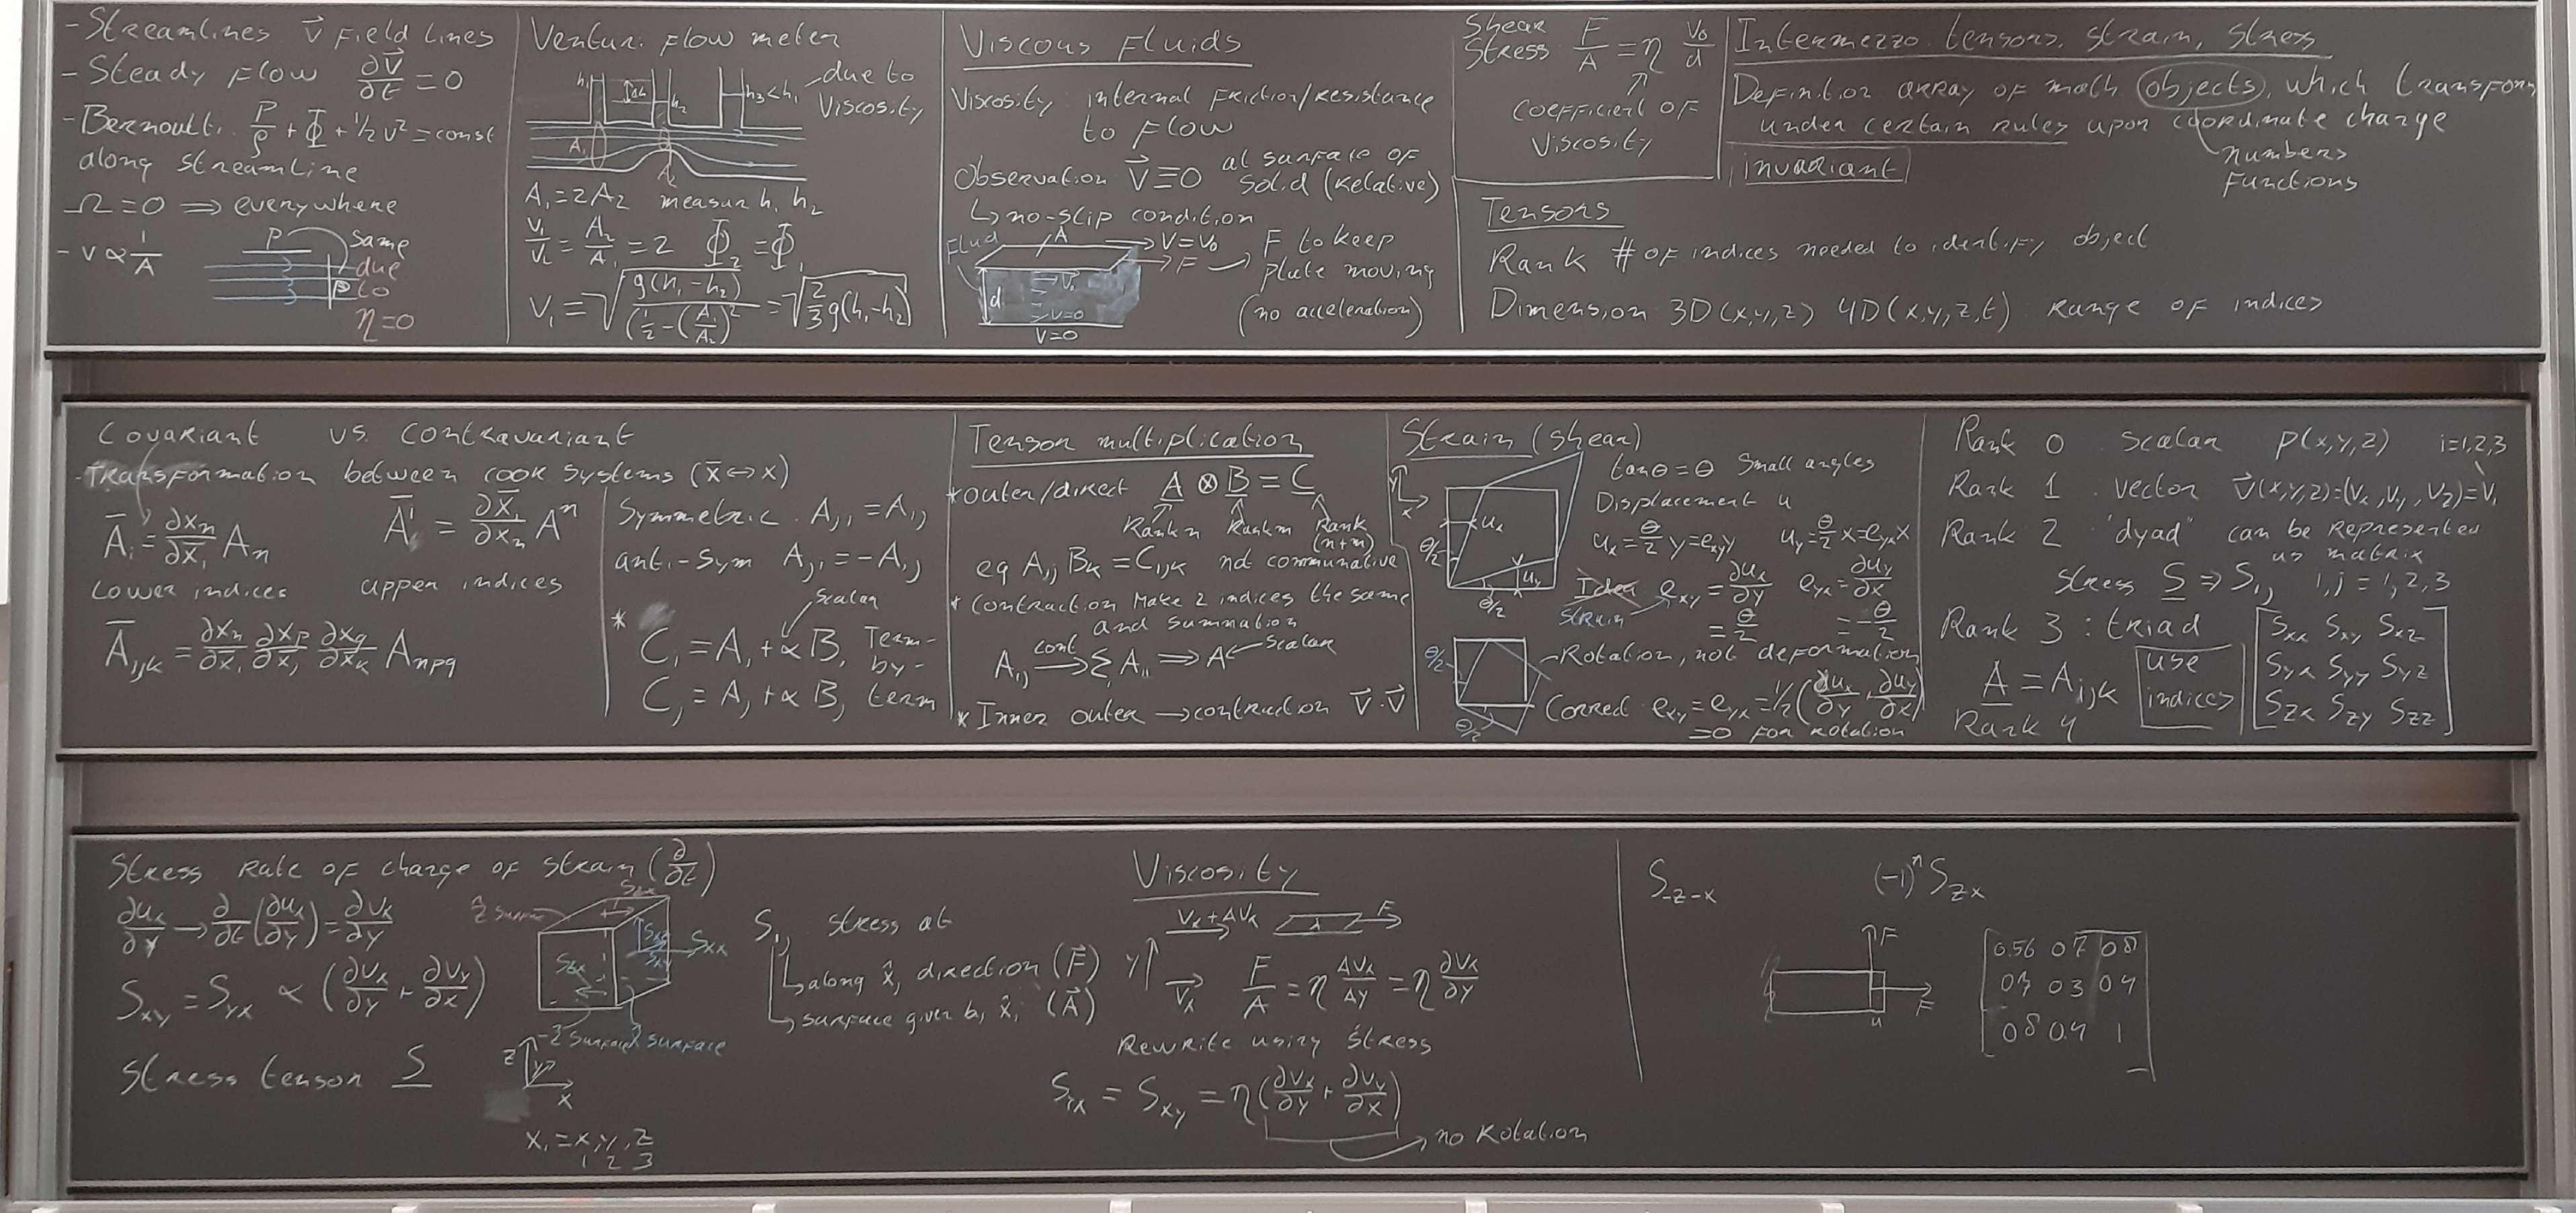 - Streamlines. v⃗ Field Lines
- Steady Flow ∂v⃗/∂t = 0
- Bernoulli. P/ρ + Φ + 1/2 v² = const
along streamline
Ω = 0 ⇒ everywhere
- v ∝ 1/A
P same
due
to
η = 0
Venturi Flow meter
h₁ Δh h₂ h₃ < h₁ due to
Viscosity
A₁ A₂
A₁ = 2A₂ measure h₁ h₂
V₁/V₂ = A₂/A₁ = 2 Φ₂ = Φ₁
V₁ = √(g(h₁-h₂)/(1/2 - (A₁/A₂)²)) = √(2/3 g(h₁-h₂))
Viscous Fluids
Viscosity internal Friction/Resistance
to Flow
Observation V⃗ ≡ 0 at surface of
solid (Relative)
↳ no-slip condition
Fluid A → V = V₀ F to keep
→ F plate moving
d V₀ (no acceleration)
V=0
V=0
Shear
Stress F/A = η V₀/d
↑
Coefficient of
Viscosity
Intermezzo. tensors, strain, stress
Definition array of math objects, which transform
under certain rules upon coordinate change
invariant
numbers
Functions
Tensors
Rank # of indices needed to identify object
Dimension 3D (x,y,z) 4D (x,y,z,t) Range of indices
Covariant vs. Contravariant
- Transformation between coor systems (x̄ ↔ x)
Āᵢ = ∂xₙ/∂x̄ᵢ Aₙ Āⁱ = ∂x̄ᵢ/∂xₙ Aⁿ
Lower indices upper indices
Āᵢⱼₖ = ∂xₙ/∂x̄ᵢ ∂xₚ/∂x̄ⱼ ∂x_q/∂x̄ₖ A_npq
Symmetric. Aⱼᵢ = Aᵢⱼ
anti-sym Aⱼᵢ = -Aᵢⱼ
scalar
* Cᵢ = Aᵢ + αBᵢ Term-
by-
Cⱼ = Aⱼ + αBⱼ term
Tensor multiplication
* outer/direct A ⊗ B = C
Rank n Rank m Rank
(n+m)
eg Aᵢⱼ Bₖ = Cᵢⱼₖ not communative
* Contraction Make 2 indices the same
and summation
Aᵢⱼ cont→ Σᵢ Aᵢᵢ ⇒ A ← scalar
* Inner outer → contraction V⃗ · V⃗
Strain (shear)
y x
tanθ = θ Small angles
Displacement u
uₓ = θ/2 y = e_xy y u_y = θ/2 x = e_yx x
uₓ θ/2 u_y θ/2
Idea e_xy = ∂uₓ/∂y e_yx = ∂u_y/∂x
strain = θ/2 = -θ/2
θ/2 Rotation, not deformation
Correct e_xy = e_yx = 1/2 (∂uₓ/∂y + ∂u_y/∂x)
θ/2 = 0 for rotation
Rank 0 scalar p(x,y,z) i=1,2,3
Rank 1. vector V⃗(x,y,z) = (Vₓ, V_y, V_z) = Vᵢ
Rank 2 "dyad" can be represented
as matrix
stress S ⇒ Sᵢⱼ i,j = 1,2,3
Rank 3 : triad
A = Aᵢⱼₖ
Rank 4
use
indices
Sxx Sxy Sxz
Syx Syy Syz
Szx Szy Szz
Stress Rate of change of strain (∂/∂t)
∂uₓ/∂y → ∂/∂t (∂uₓ/∂y) = ∂vₓ/∂y
Sxy = Syx ∝ (∂vₓ/∂y + ∂v_y/∂x)
Stress tensor S
Szx
Sxx
surface
z y x
xᵢ = x, y, z
1 2 3
Sᵢⱼ stress at
along x̂ⱼ direction (F⃗)
surface given by x̂ᵢ (A⃗)
Viscosity
Vₓ + ΔVₓ A F
y Vₓ F/A = η ΔVₓ/Δy = η ∂Vₓ/∂y
Rewrite using stress
Syx = Sxy = η (∂Vₓ/∂y + ∂V_y/∂x)
no Rotation
S-z-x (-1)ⁿ Szx
F
F
u
0.56 0.7 0.8
0.7 0.3 0.4
0.8 0.4 1